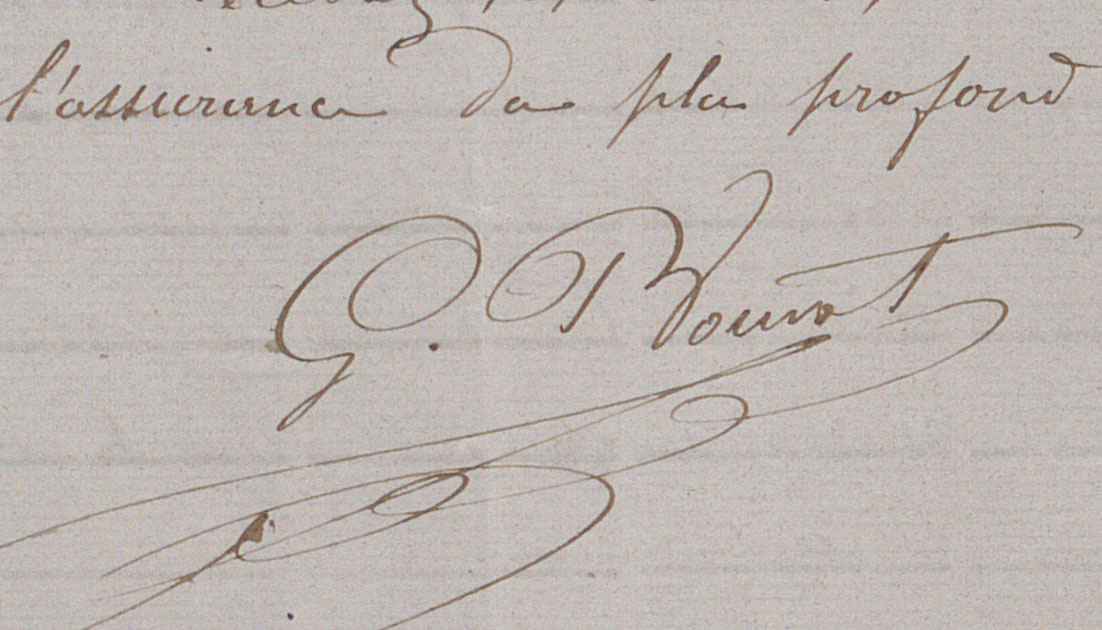 l'assurance du plus profond
G. Bounat